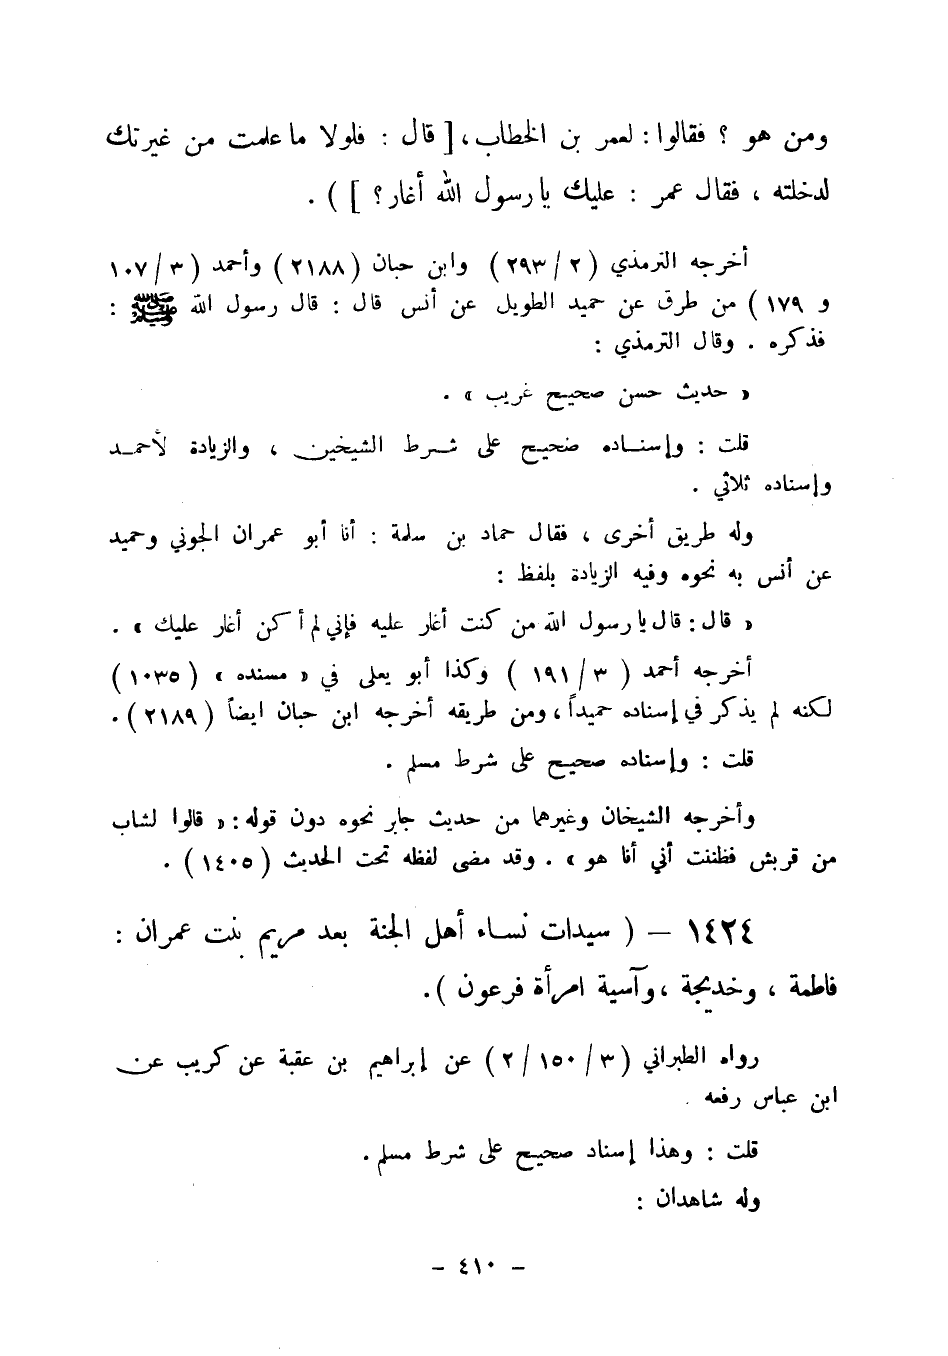 ومن هو ؟ فقالوا : لعمر بن الخطاب ، [ قال : فلولا ما علمت من غيرتك
لدخلته ، فقال عمر : عليك يا رسول الله أغار ؟ ] ) .
أخرجه الترمذي ( ٢ / ٢٩٣ ) وابن حبان ( ٢١٨٨ ) وأحمد ( ٣ / ١٠٧
و ١٧٩ ) من طرق عن حميد الطويل عن أنس قال : قال رسول الله ﷺ :
فذكره . وقال الترمذي :
« حديث حسن صحيح غريب » .
قلت : وإسناده صحيح على شرط الشيخين ، والزيادة لأحمد
وإسناده ثلاثي .
وله طريق أخرى ، فقال حماد بن سلمة : أنا أبو عمران الجوني وحميد
عن أنس به نحوه وفيه الزيادة بلفظ :
« قال : قال يا رسول الله من كنت أغار عليه فإني لم أكن أغار عليك » .
أخرجه أحمد ( ٣ / ١٩١ ) وكذا أبو يعلى في « مسنده » ( ١٠٣٥ )
لكنه لم يذكر في إسناده حميداً ، ومن طريقه أخرجه ابن حبان ايضاً ( ٢١٨٩ ) .
قلت : وإسناده صحيح على شرط مسلم .
وأخرجه الشيخان وغيرهما من حديث جابر نحوه دون قوله : « قالوا لشاب
من قريش فظننت أني أنا هو » . وقد مضى لفظه تحت الحديث ( ١٤٠٥ ) .
١٤٢٤ – ( سيدات نساء أهل الجنة بعد مريم بنت عمران :
فاطمة ، وخديجة ، وآسية امرأة فرعون ) .
رواه الطبراني ( ٣ / ١٥٠ / ٢ ) عن إبراهيم بن عقبة عن كريب عن
ابن عباس رفعه .
قلت : وهذا إسناد صحيح على شرط مسلم .
وله شاهدان :
- ٤١٠ -